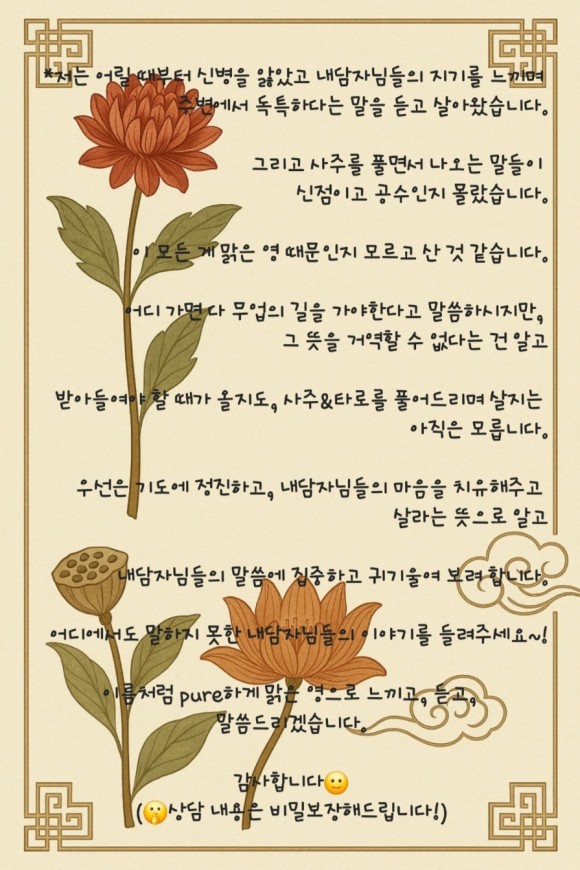 *저는 어릴 때부터 신병을 앓았고 내담자님들의 지기를 느끼며
주변에서 독특하다는 말을 듣고 살아왔습니다.
그리고 사주를 풀면서 나오는 말들이
신점이고 공수인지 몰랐습니다.
이 모든 게 맑은 영 때문인지 모르고 산 것 같습니다.
어디 가면 다 무업의 길을 가야한다고 말씀하시지만,
그 뜻을 거역할 수 없다는 건 알고
받아들여야 할 때가 올지도, 사주&타로를 풀어드리며 살지는
아직은 모릅니다.
우선은 기도에 정진하고, 내담자님들의 마음을 치유해주고
살라는 뜻으로 알고
내담자님들의 말씀에 집중하고 귀기울여 보려 합니다.
어디에서도 말하지 못한 내담자님들의 이야기를 들려주세요~!
이름처럼 pure하게 맑은 영으로 느끼고, 듣고,
말씀드리겠습니다.
감사합니다🙂
(🤫상담 내용은 비밀보장해드립니다!)